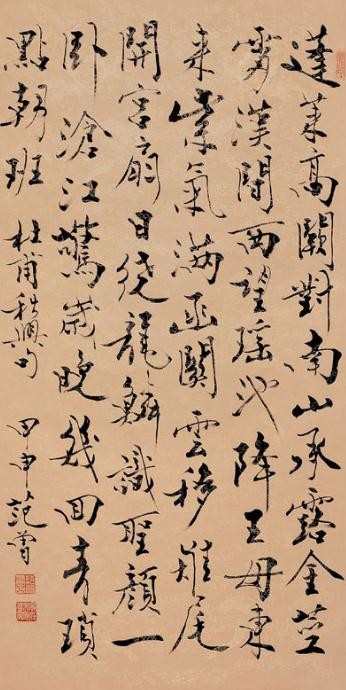 蓬莱高闕對南山承露金莖
霄漢間西望瑶池降王母東
来紫氣滿函關雲移雉尾
開宮扇日繞龍鱗識聖顏一
卧滄江驚歲晚幾回青瑣
點朝班 杜甫秋興句 甲申 范曾